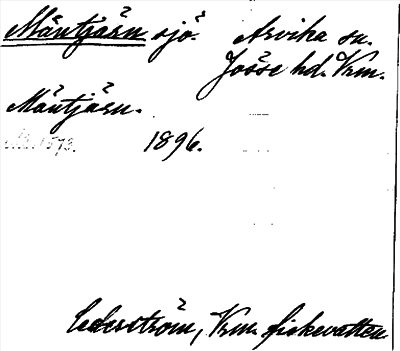 Mäntjärn sjö. Arvika sn.
Jösse hd. Vrm.
Mäntjärn.
1896.
Cederström, Vrm. fiskevatten.